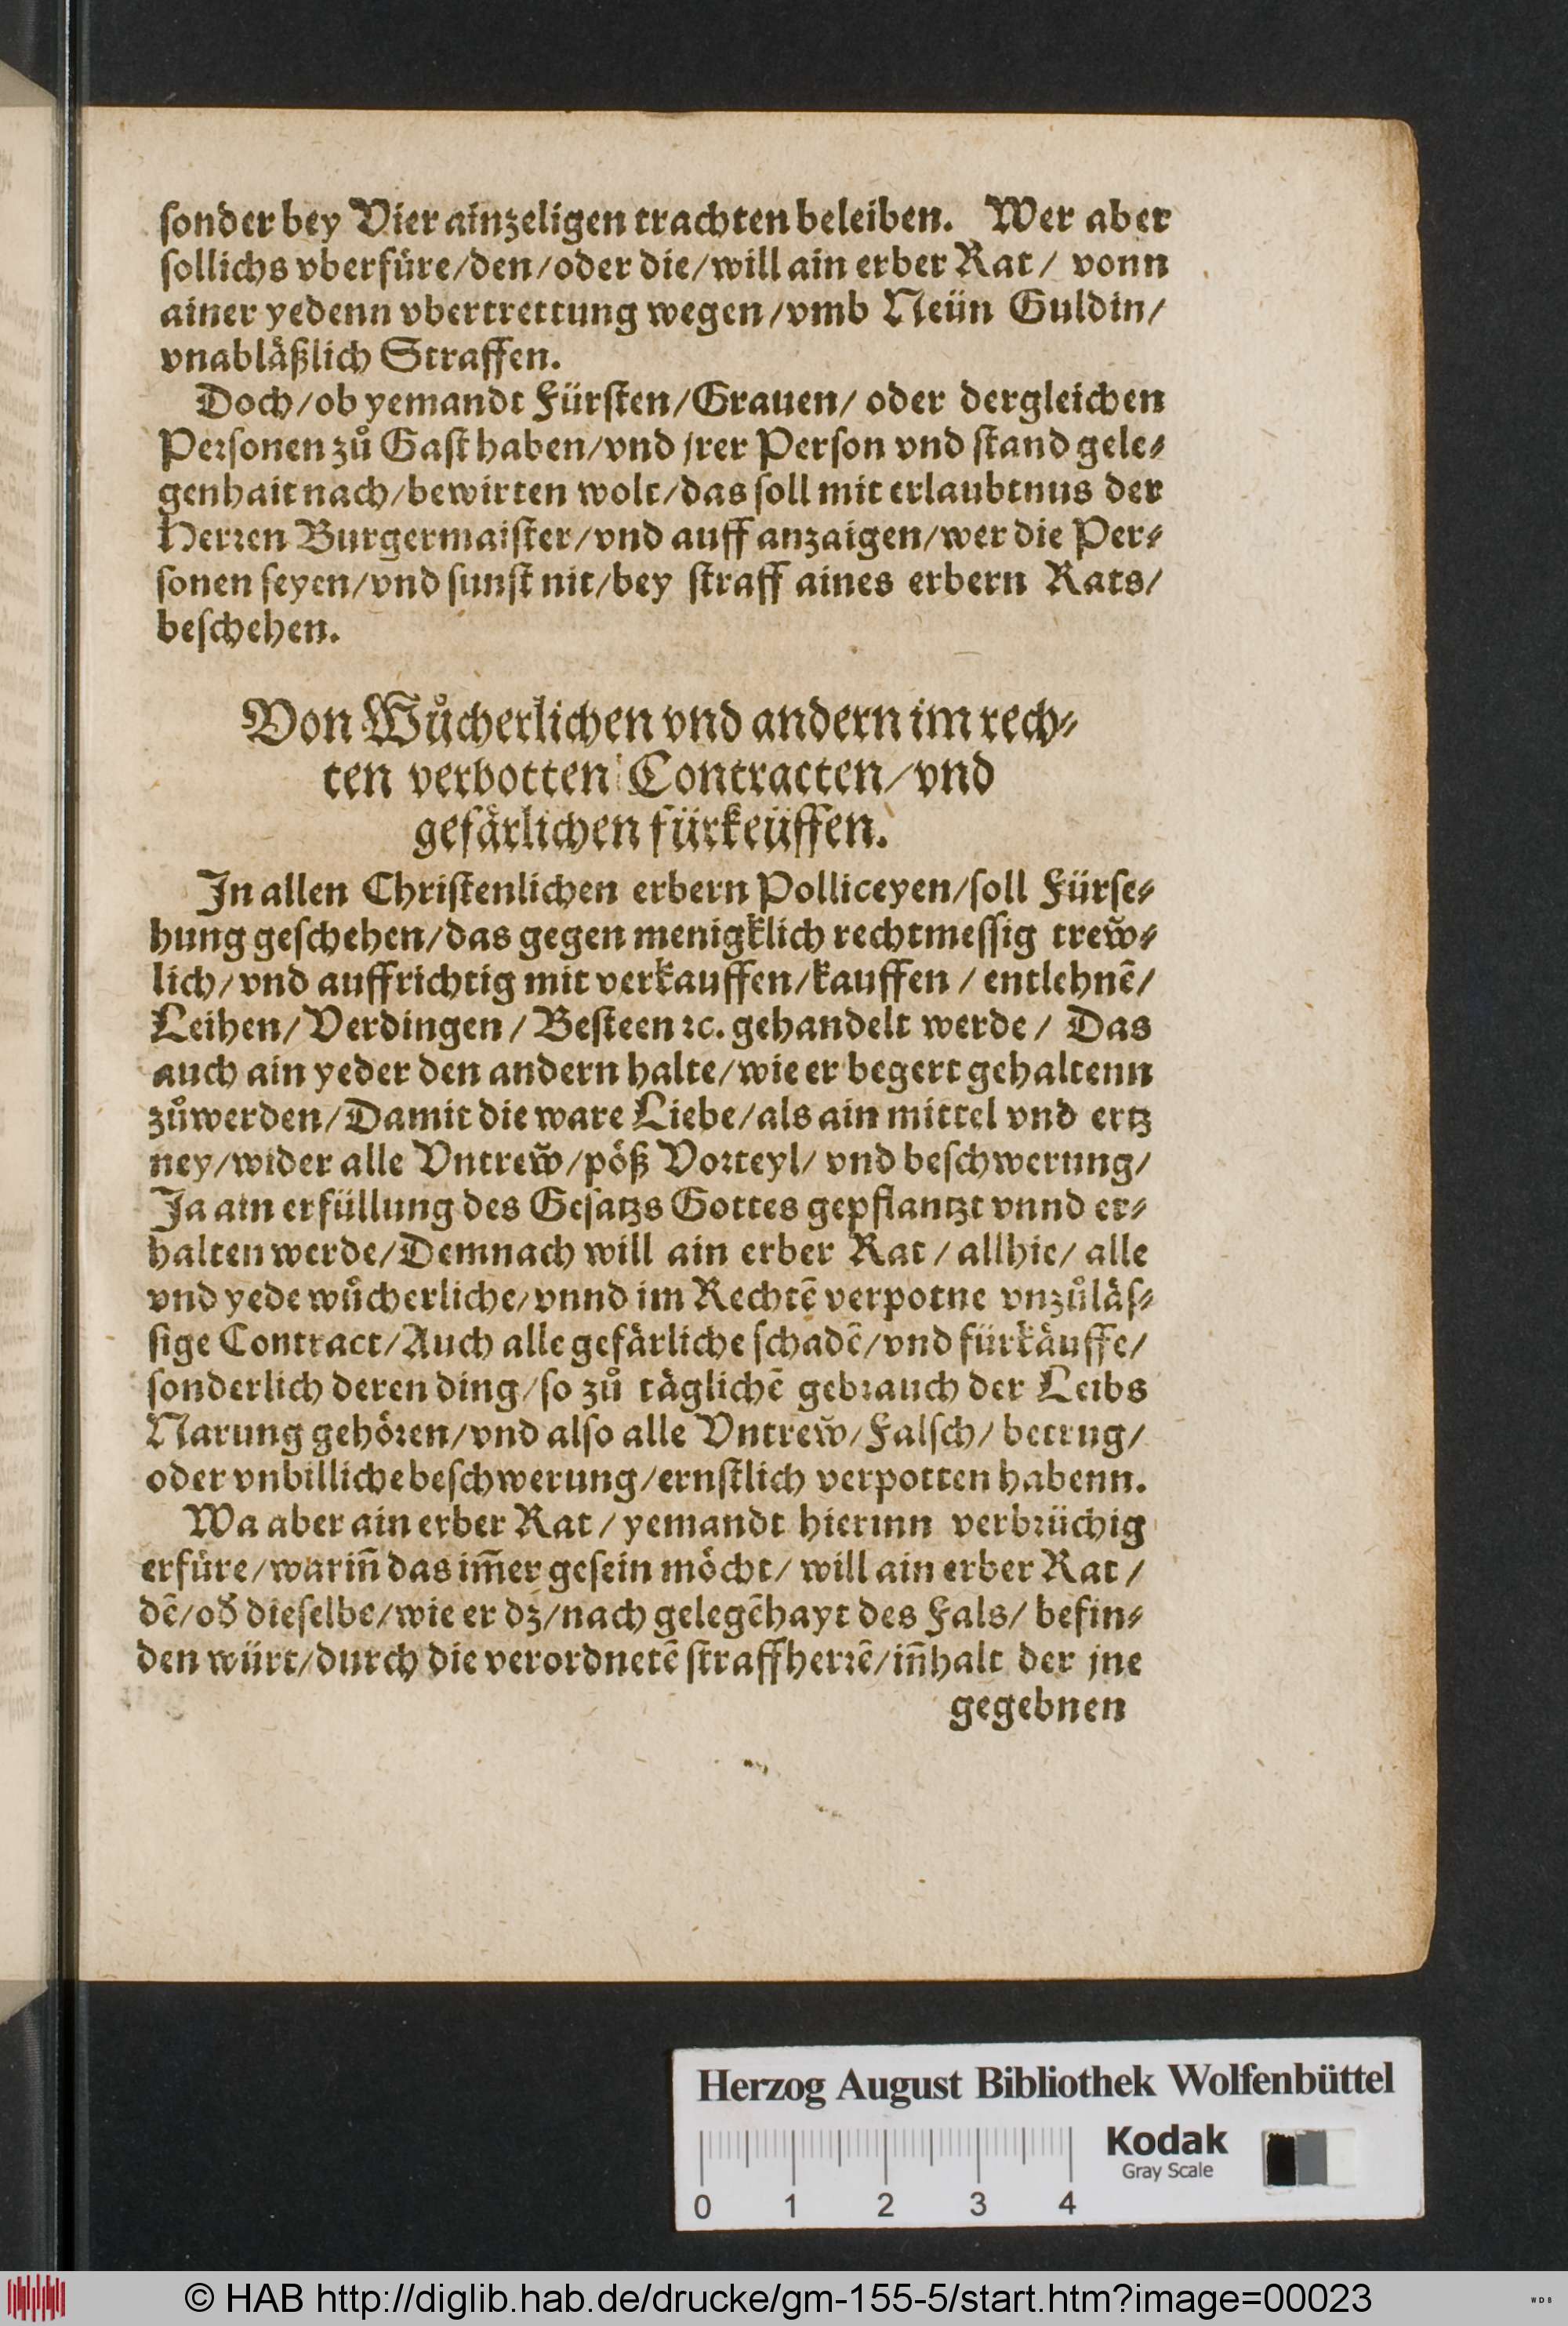 ſonder bey Vier ainzeligen trachten beleiben. Wer aber
ſollichs vberfüre/den/oder die/will ain erber Rat/ vonn
ainer yedenn vbertrettung wegen/vmb Neün Guldin/
vnabläßlich Straffen.
Doch/ob yemandt Fürſten/Grauen/ oder dergleichen
Perſonen zů Gaſt haben/vnd jrer Perſon vnd ſtand gele⸗
genhait nach/bewirten wolt/das ſoll mit erlaubtnus der
Herꝛen Burgermaiſter/vnd auff anzaigen/wer die Per⸗
ſonen ſeyen/vnd ſunſt nit/bey ſtraff aines erbern Rats/
beſchehen.
Von Wůcherlichen vnd andern im rech⸗
ten verbotten Contracten/vnd
gefärlichen fürkeüffen.
In allen Chriſtenlichen erbern Polliceyen/ſoll Fürſe⸗
hung geſchehen/das gegen menigklich rechtmeſſig trew̆⸗
lich/vnd auffrichtig mit verkauffen/kauffen / entlehnē/
Leihen/Verdingen/Beſteen ꝛc. gehandelt werde/ Das
auch ain yeder den andern halte/wie er begert gehaltenn
zůwerden/Damit die ware Liebe/als ain mittel vnd ertz
ney/wider alle Vntrew̆/pöß Voꝛteyl/ vnd beſchwerung/
Ja ain erfüllung des Geſatzs Gottes gepflantzt vnnd er⸗
halten werde/Demnach will ain erber Rat/allhie/ alle
vnd yede wůcherliche/vnnd im Rechtē verpotne vnzůläſ⸗
ſige Contract/Auch alle gefärliche ſchadē/vnd fürkäuffe/
ſonderlich deren ding/ſo zů täglichē gebꝛauch der Leibs
Narung gehöꝛen/vnd alſo alle Vntrew̆/Falſch/ betrug/
oder vnbilliche beſchwerung/ernſtlich verpotten habenn.
Wa aber ain erber Rat/yemandt hierinn verbꝛüchig
erfüre/warin̄ das im̄er geſein möcht/ will ain erber Rat/
dē/od̕ dieſelbe/wie er dz/nach gelegēhayt des Fals/ befin⸗
den würt/durch die verordnetē ſtraffherꝛē/in̄halt der jne
gegebnen
Herzog August Bibliothek Wolfenbüttel
Kodak
Gray Scale
0 1 2 3 4
© HAB http://diglib.hab.de/drucke/gm-155-5/start.htm?image=00023
WDB